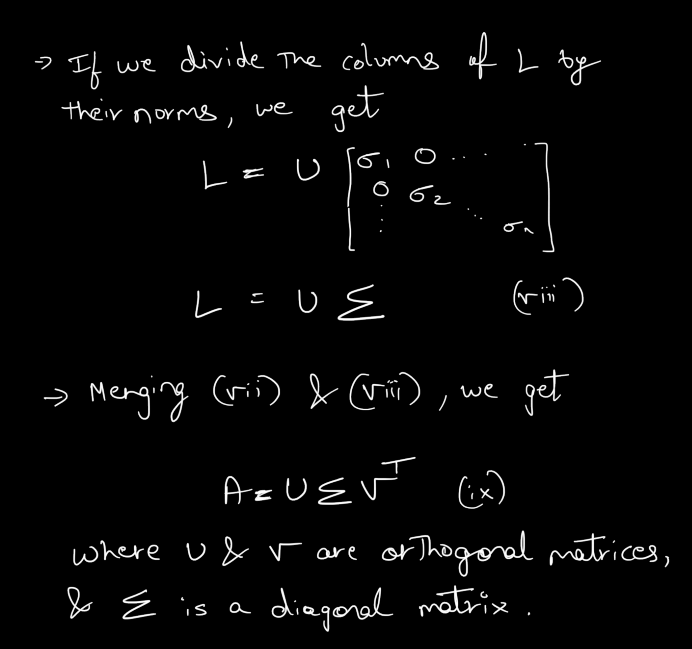 → If we divide the columns of L by
their norms, we get
L = U [σ₁ 0 ... .
0 σ₂ ...
⋮ σₙ]
L = U Σ (viii)
→ Merging (vii) & (viii), we get
A = U Σ Vᵀ (ix)
where U & V are orthogonal matrices,
& Σ is a diagonal matrix.